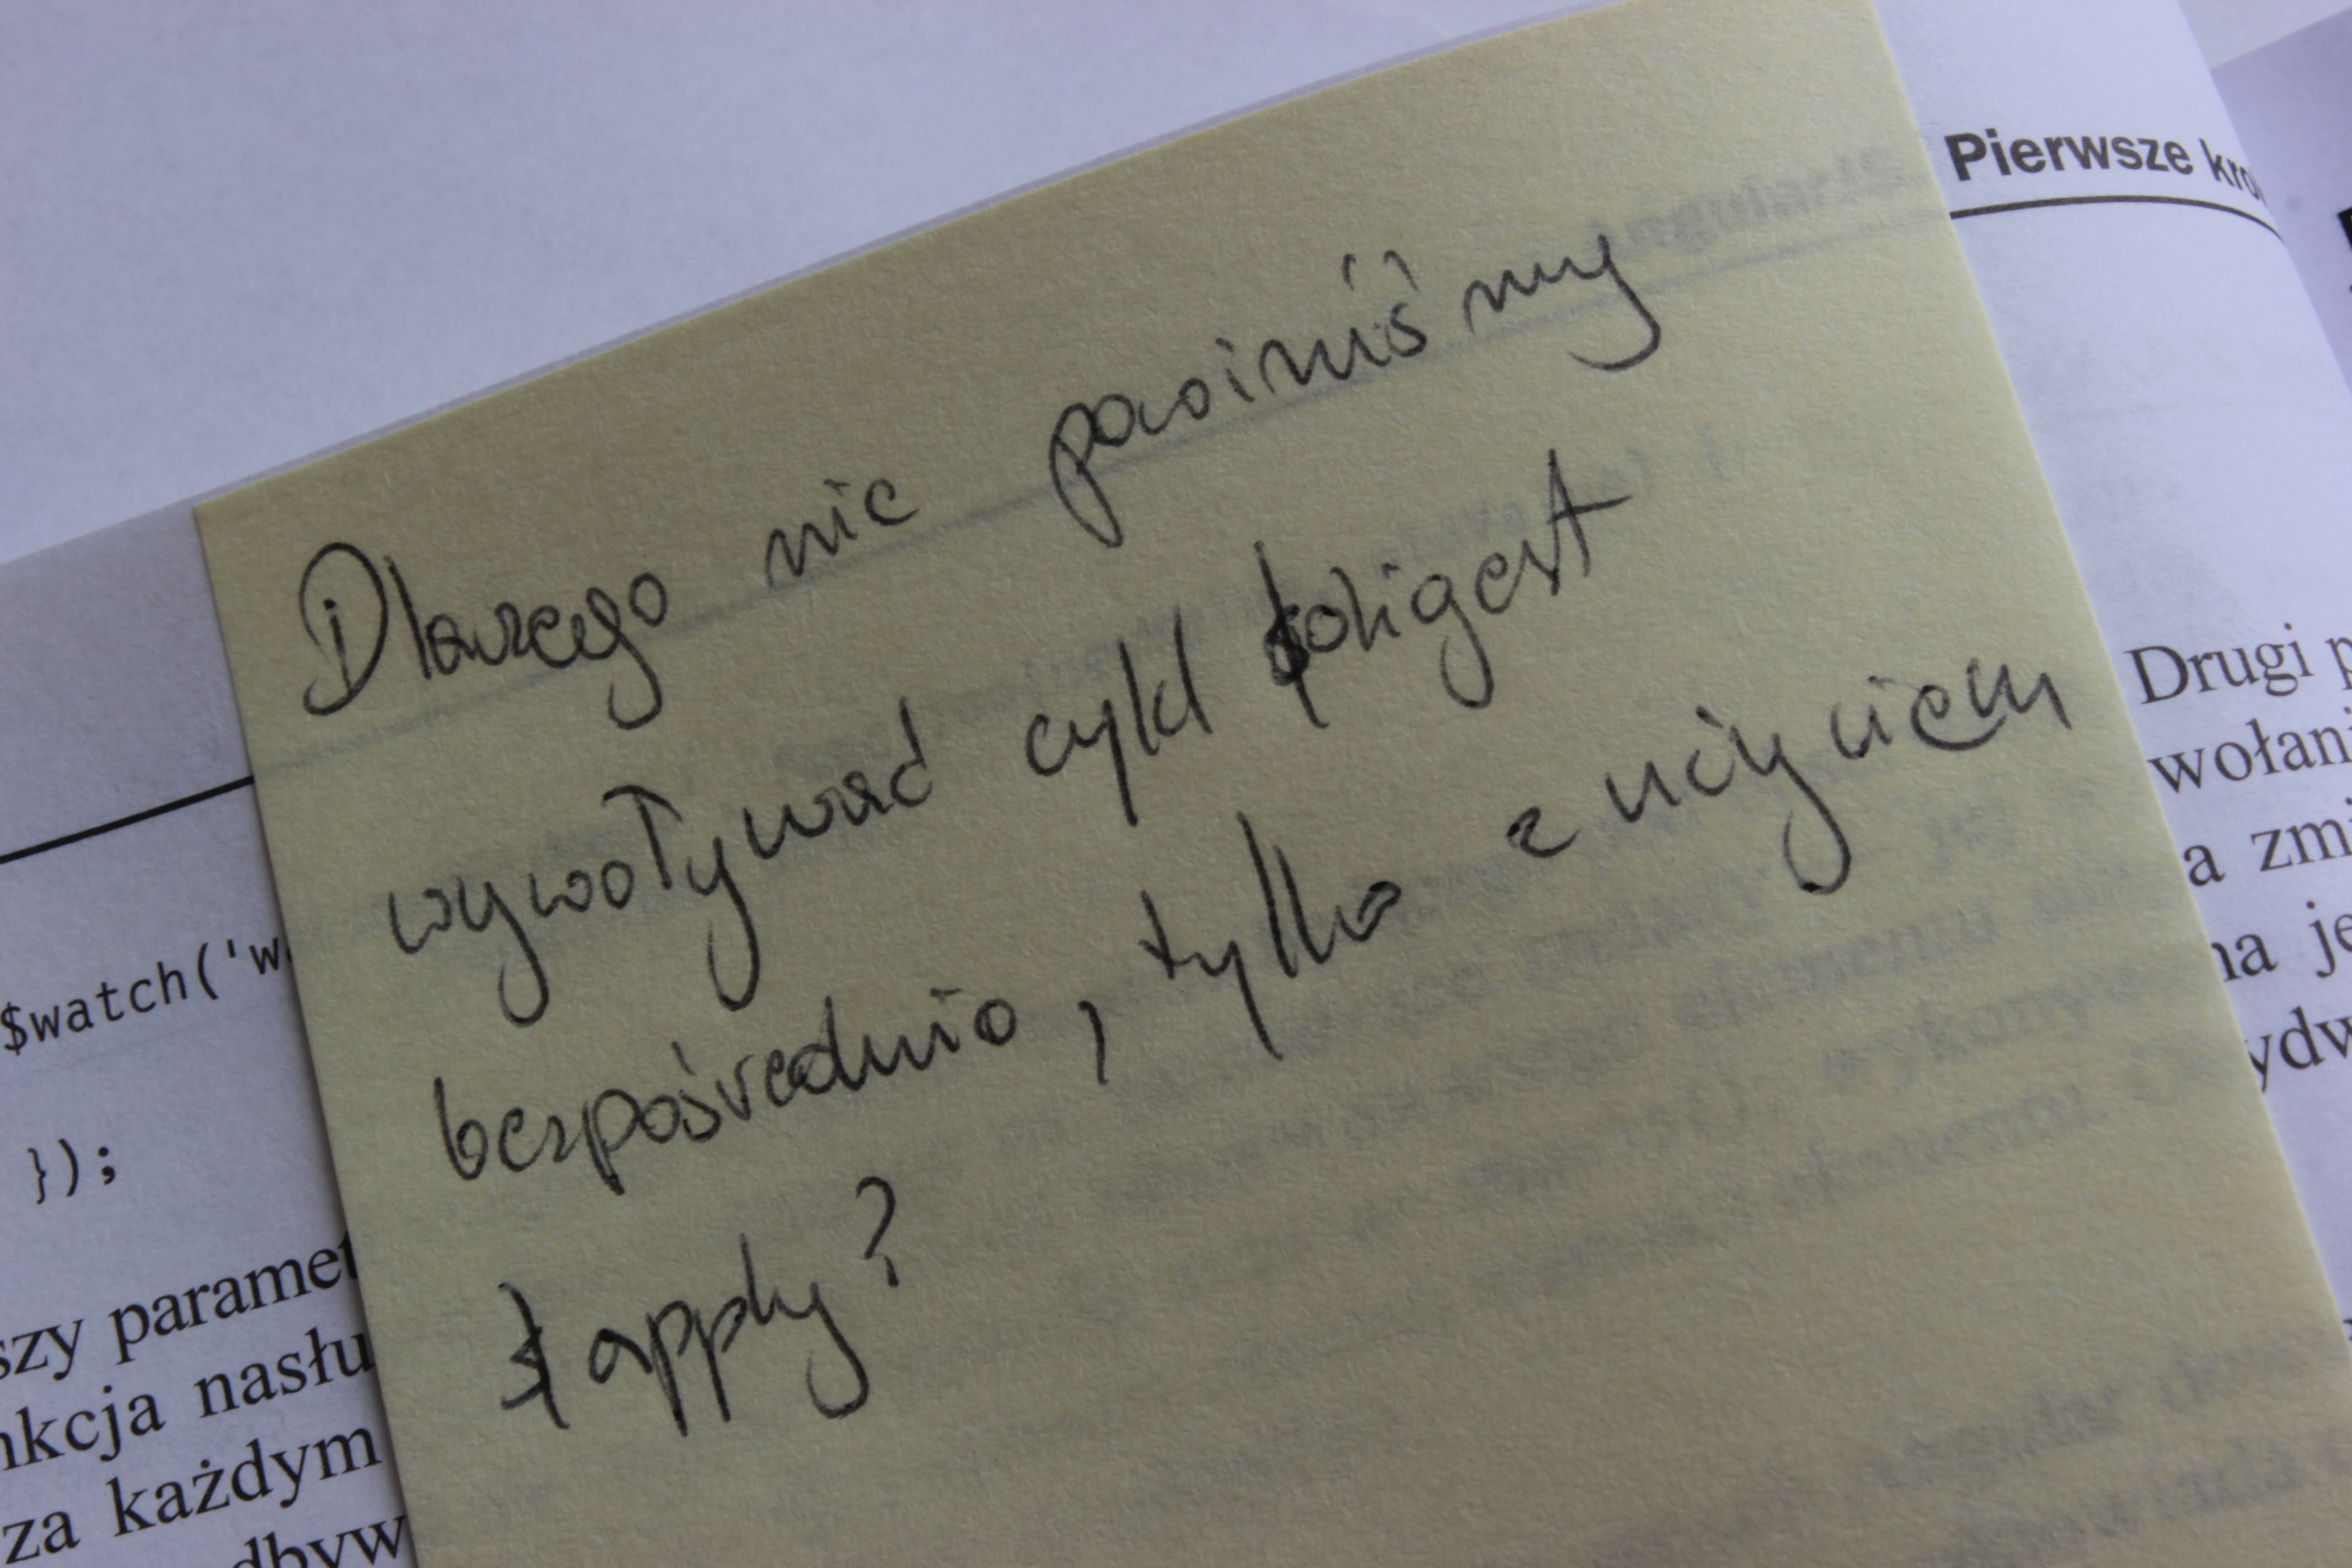 Pierwsze kro
Dlaczego nie powinniśmy
wywoływać cykl $digest
bezpośrednio, tylko z użyciem
$apply?
$watch('w
});
szy paramet
nkcja nasłu
za każdym
dbyw
Drugi p
wołani
a zmi
na je
ydw